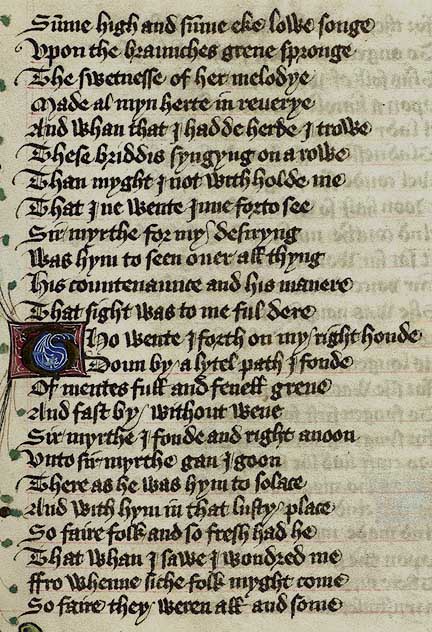 Sūme high and sūme eke lowe songe
Vpon the braunches grene spronge
The swetnesse of her melodye
Made al myn herte in reuerye
And whan that I hadde herde I trowe
These briddis syngyng on a rowe
Than myght I not withholde me
That I ne wente inne forto see
Sir myrthe for my desiryng
Was hym to seen ouer alle thyng
His countenaunce and his manere
That sight was to me ful dere
Tho wente I forth on my right honde
Doun by a lytel path I fonde
Of mentes full and fenell grene
And fast by without wene
Sir myrthe I fonde and right anoon
Vnto sir myrthe gan I goon
There as he was hym to solace
And with hym in that lusty place
So faire folk and so fresh had he
That whan I sawe I wondred me
ffro whenne siche folk myght come
So faire they weren all and some